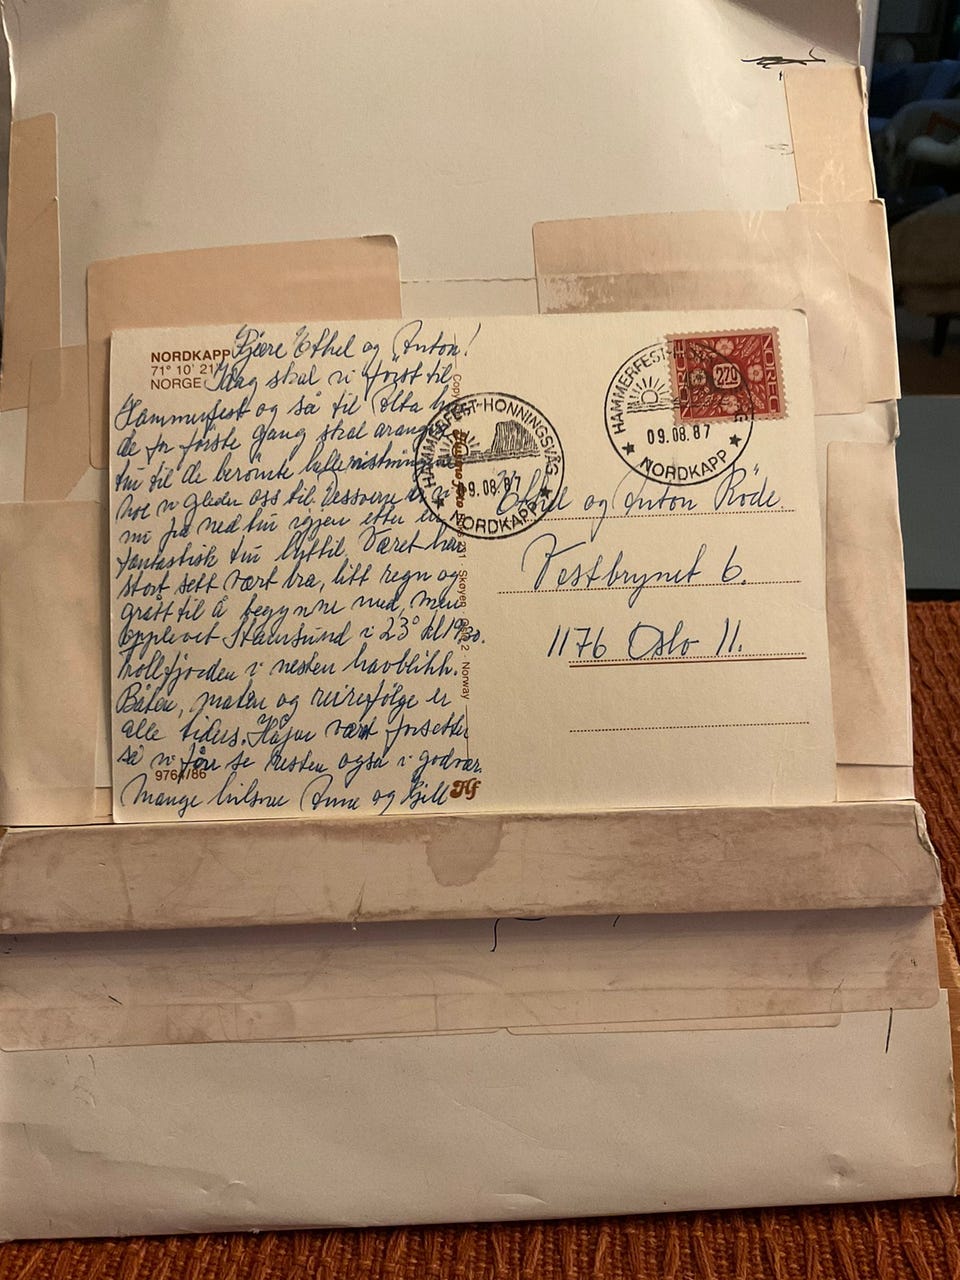 NORDKAPP
71° 10' 21"
NORGE
Kjære Ethel og Anton!
Idag skal vi først til
Hammerfest og så til Alta hvor
de for første gang skal arangere
tur til de berømte helleristningene
noe vi gleder oss til. Dessverre er vi
nu på ned tur igjen etter en
fantastisk tur hittil. Været har
stort sett vært bra, litt regn og
grått til å begynne med, men
opplevet Stamsund i 23° kl 19.30.
Trollfjorden i nesten havblikk.
Båten, maten og reisefølge er
alle tiders. Håper været forsetter
så vi får se resten også i godvær.
Mange hilsner Anne og Kjell
9764/86
Skøyen
Norway
HAMMERFEST-HONNINGSVÅG
09.08.87
NORDKAPP
HAMMERFEST-
09.08.87
NORDKAPP
NORGE
270
NOREG
Ethel og Anton Rode.
Vestbrynet 6.
1176 Oslo 11.